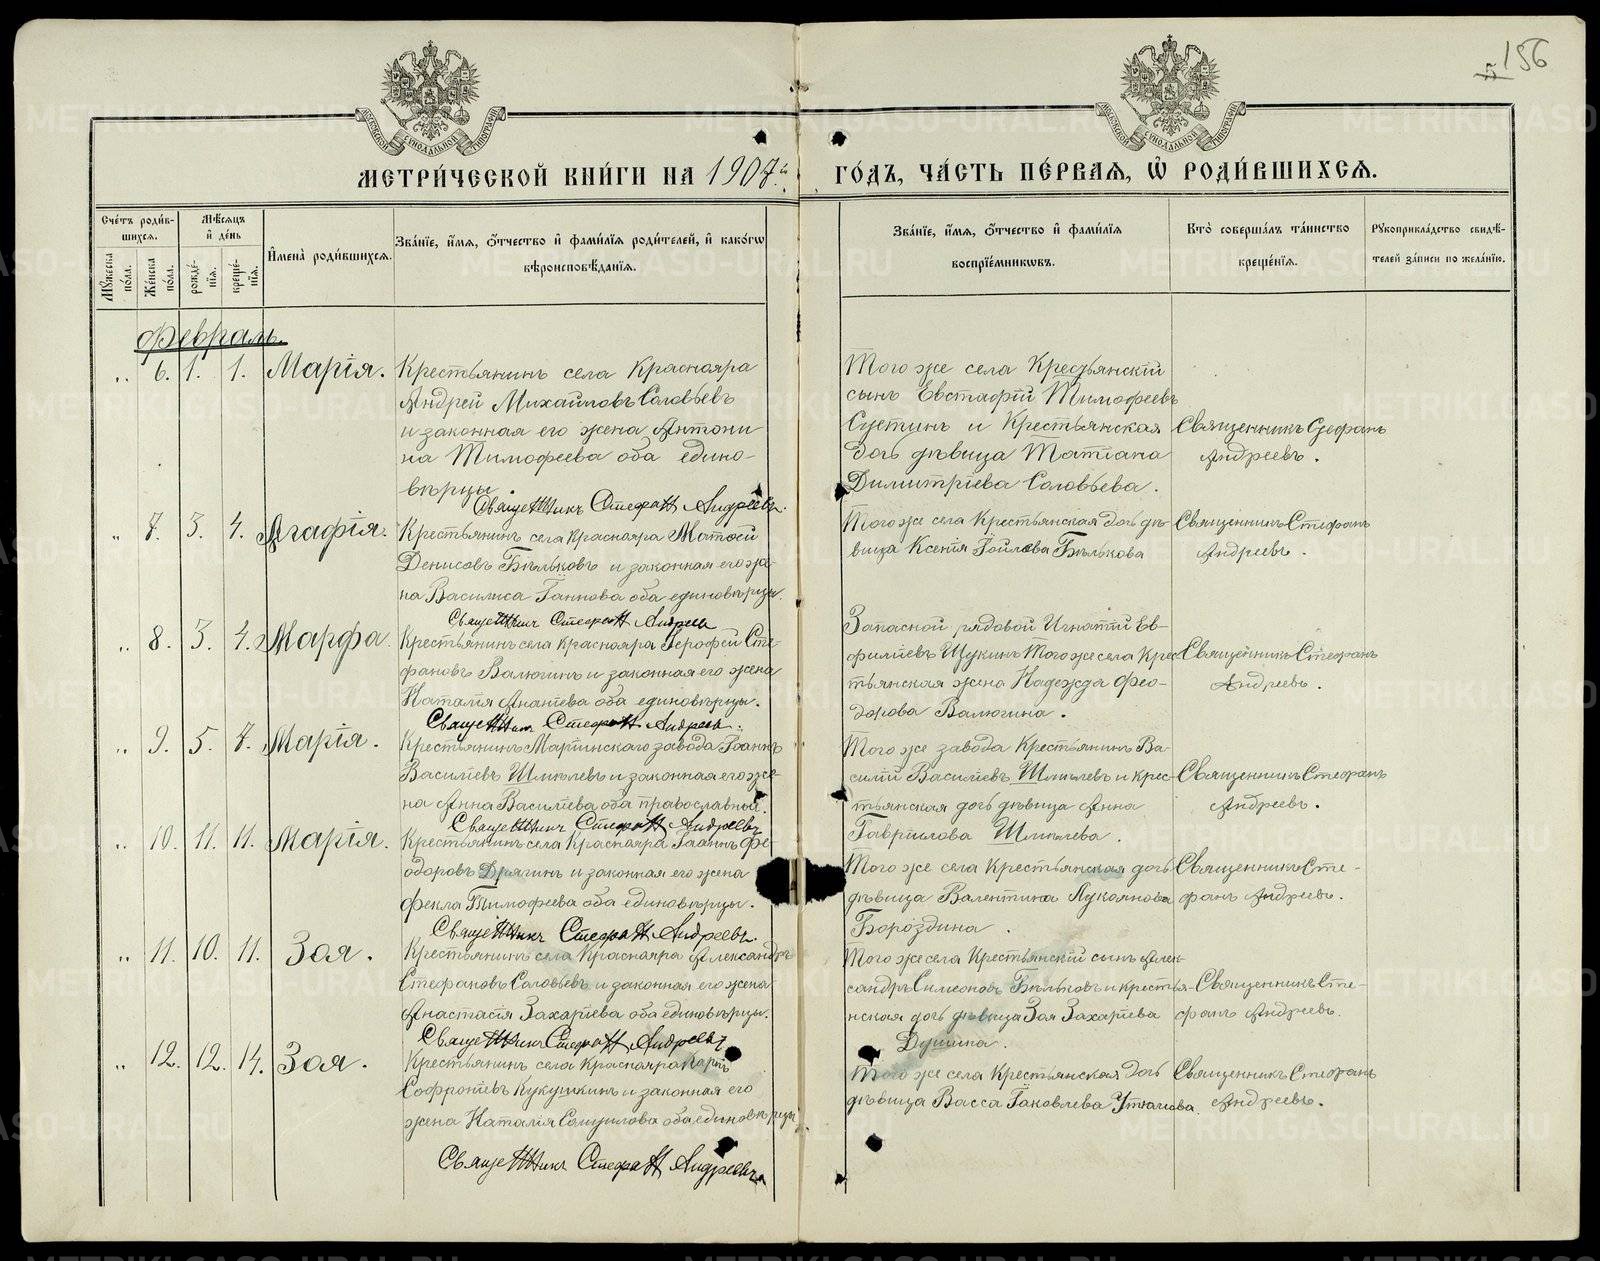 156
МЕТРИ́ЧЕСКОЙ КНИ́ГИ НА 1907й
ГО́ДЪ, ЧА́СТЬ ПЕ́РВАЯ, Ѡ РОДИ́ВШИХСЯ.
Сче́тъ роди́в-
шихся.
Мѣ́сяцъ
и де́нь
Му́жеска по́ла.
Же́нска по́ла.
рожде́-
нїя.
креще́-
нїя.
Имена̀ роди́вшихся.
Зва́нїе, и́мя, о́тчество и фами́лїя роди́телей, и како́гѡ
вѣроисповѣ́данїя.
Зва́нїе, и́мя, о́тчество и фами́лїя
воспрїе́мникѡвъ.
Кто̀ соверша́лъ та́инство
креще́нїя.
Рукоприкла́дство свидѣ́-
телей за́писи по жела́нїю.
Февраль.
„ 6. 1. 1. Марія.
Крестьянинъ села Краснояра
Андрей Михайловъ Соловьевъ
и законная его жена Антони
на Тимофеева оба едино-
вѣрцы.
Священникъ Стефанъ Андреевъ.
Того же села Крестьянскій
сынъ Евстафій Тимофеевъ
Суетинъ и Крестьянская
дочь дѣвица Татіана
Димитріева Соловьева.
Священникъ Стефанъ
Андреевъ.
„ 7. 3. 4. Агафія.
Крестьянинъ села Краснояра Матѳей
Денисовъ Бѣльковъ и законная его же-
на Василиса Іаннова оба единовѣрцы.
Священникъ Стефанъ Андреевъ
Того же села Крестьянская дочь дѣ-
вица Ксенія Бѣлькова
Священникъ Стефанъ
Андреевъ.
„ 8. 3. 4. Марфа.
Крестьянинъ села Краснояра Іерофей Сте-
фановъ Валюгинъ и законная его жена
Наталія Ананіева оба единовѣрцы.
Священникъ Стефанъ Андреевъ.
Запасной рядовой Игнатій Ев-
филіевъ Щукинъ Того же села Крес-
тьянская жена Надежда Фео-
дорова Валюгина.
Священникъ Стефанъ
Андреевъ.
„ 9. 5. 7. Марія.
Крестьянинъ Маріинскаго завода Іоаннъ
Василіевъ Шмелевъ и законная его же-
на Анна Василіева оба православныи.
Священникъ Стефанъ Андреевъ
Того же завода Крестьянинъ Ва-
силій Василіевъ Шмелевъ и крес-
тьянская дочь дѣвица Анна
Гавриилова Шмелева.
Священникъ Стефанъ
Андреевъ.
„ 10. 11. 11. Марія.
Крестьянинъ села Краснояра Іоаннъ Фе-
одоровъ Дрягинъ и законная его жена
Фекла Тимофеева оба единовѣрцы.
Священникъ Стефанъ Андреевъ.
Того же села Крестьянская дочь
дѣвица Валентина Лукоянова
Бороздина.
Священникъ Сте-
фанъ Андреевъ.
„ 11. 10. 11. Зоя.
Крестьянинъ села Краснояра Александръ
Стефановъ Соловьевъ и законная его жена
Анастасія Захаріева оба единовѣрцы.
Священникъ Стефанъ Андреевъ
Того же села Крестьянскій сынъ Алек-
сандръ Симеоновъ Бѣльковъ и крестья-
нская дочь дѣвица Зоя Захаріева
Душина.
Священникъ Сте-
фанъ Андреевъ.
„ 12. 12. 14. Зоя.
Крестьянинъ села Краснояра Карпъ
Софроніевъ Кукушкинъ и законная его
жена Наталія Самуилова оба единовѣрцы.
Священникъ Стефанъ Андреевъ
Того же села Крестьянская дочь
дѣвица Васса Іаковлева
Священникъ Стефанъ
Андреевъ.
METRIKI.GASO-URAL.RU